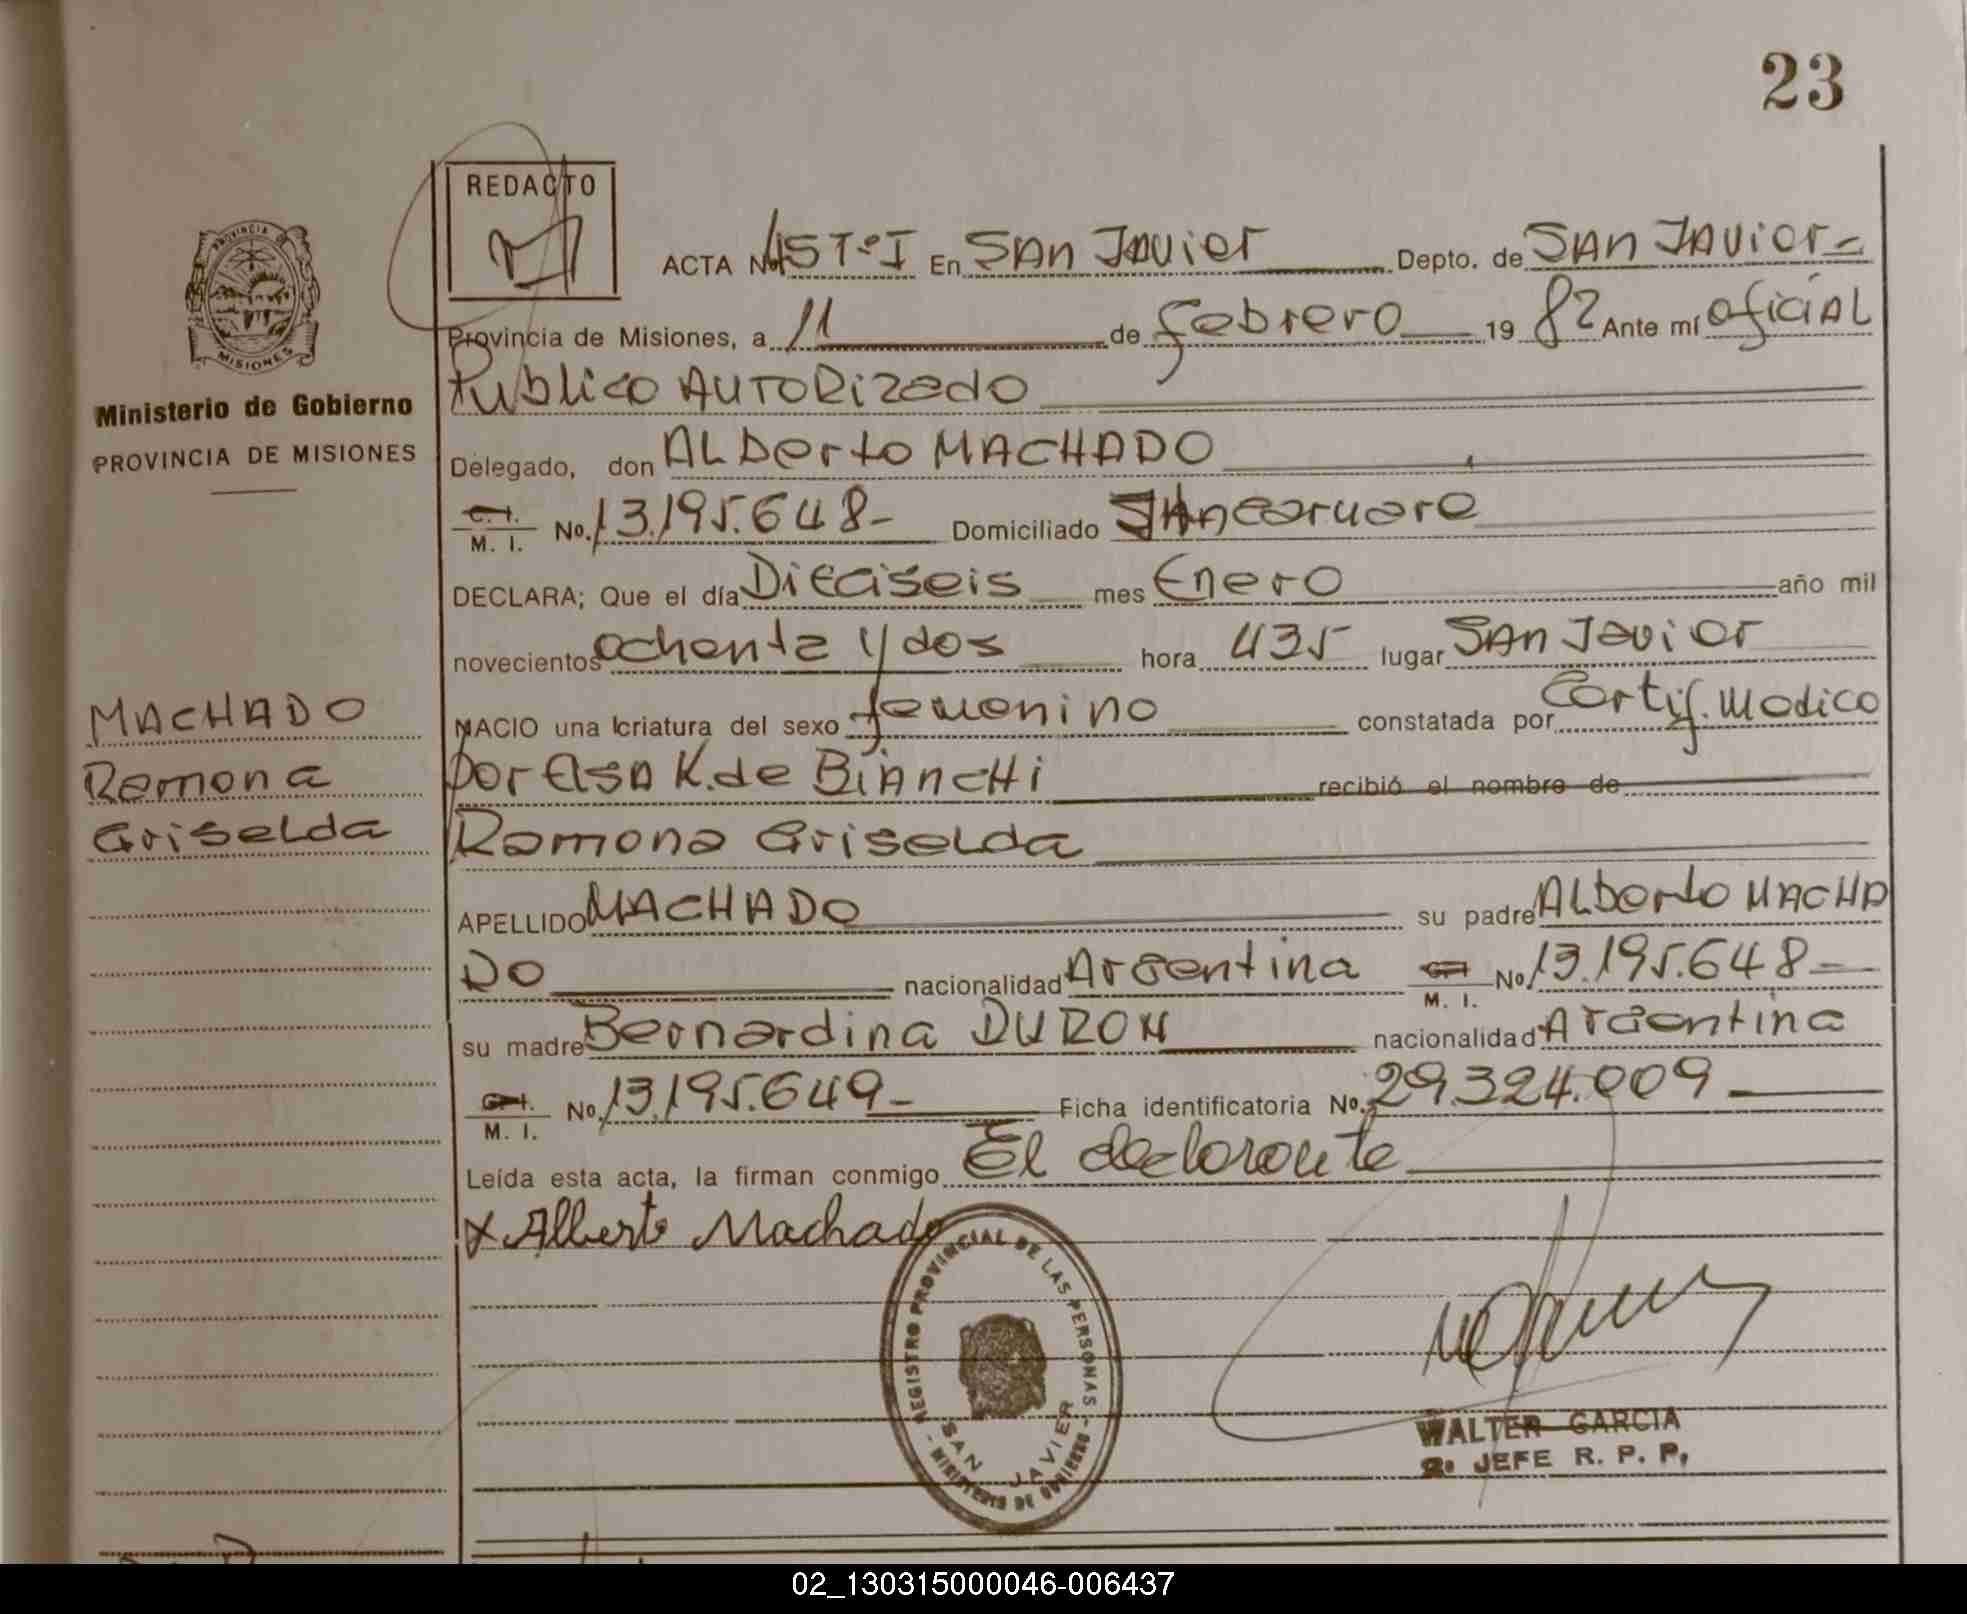 23
REDACTO
PROVINCIA DE
MISIONES
ACTA No. 45 Tº I En SAN JAVIER Depto. de SAN JAVIER
Provincia de Misiones, a 11 de febrero 19 82 Ante mí oficiAL
Publico AUTORizado
Ministerio de Gobierno
PROVINCIA DE MISIONES
Delegado, don ALberto MACHADO
C. I.
M. I. No. 13.195.648- Domiciliado
DECLARA; Que el día Dieciseis mes Enero año mil
novecientos ochenta y dos hora 435 lugar SAN Javier
MACHADO
Ramona
Griselda
NACIO una criatura del sexo femenino constatada por Certif. Medico
por Elsa K. de BiANCHi recibió el nombre de
Ramona Griselda
APELLIDO MACHADO su padre ALberto MACHA
DO nacionalidad Argentina M. I. No. 13.195.648-
su madre Bernardina DURON nacionalidad Argentina
C. I.
M. I. No. 13.195.649- Ficha identificatoria No. 29.324.009
Leída esta acta, la firman conmigo El declarante
x Alberto Machado
REGISTRO PROVINCIAL DE LAS PERSONAS
- MINISTERIO DE GOBIERNO -
SAN JAVIER
WALTER GARCIA
2. JEFE R. P. P.
02_130315000046-006437